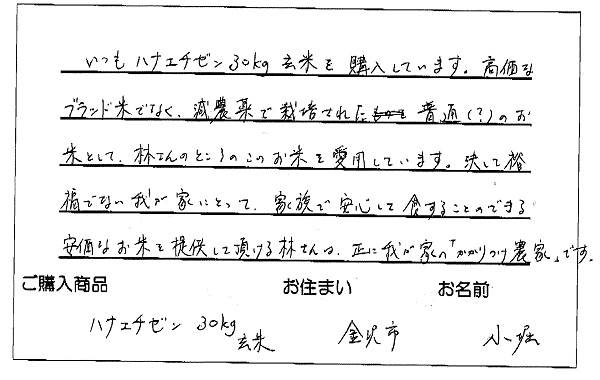 いつもハナエチゼン30kg玄米を購入しています。高価な
ブランド米でなく、減農薬で栽培された普通(?)のお
米として、林さんのところのこのお米を愛用しています。決して裕
福でない我が家にとって、家族で安心して食することのできる
安価なお米を提供して頂ける林さんは、正に我が家の「かかりつけ農家」です。
ご購入商品 お住まい お名前
ハナエチゼン 30kg玄米 金沢市 小堀